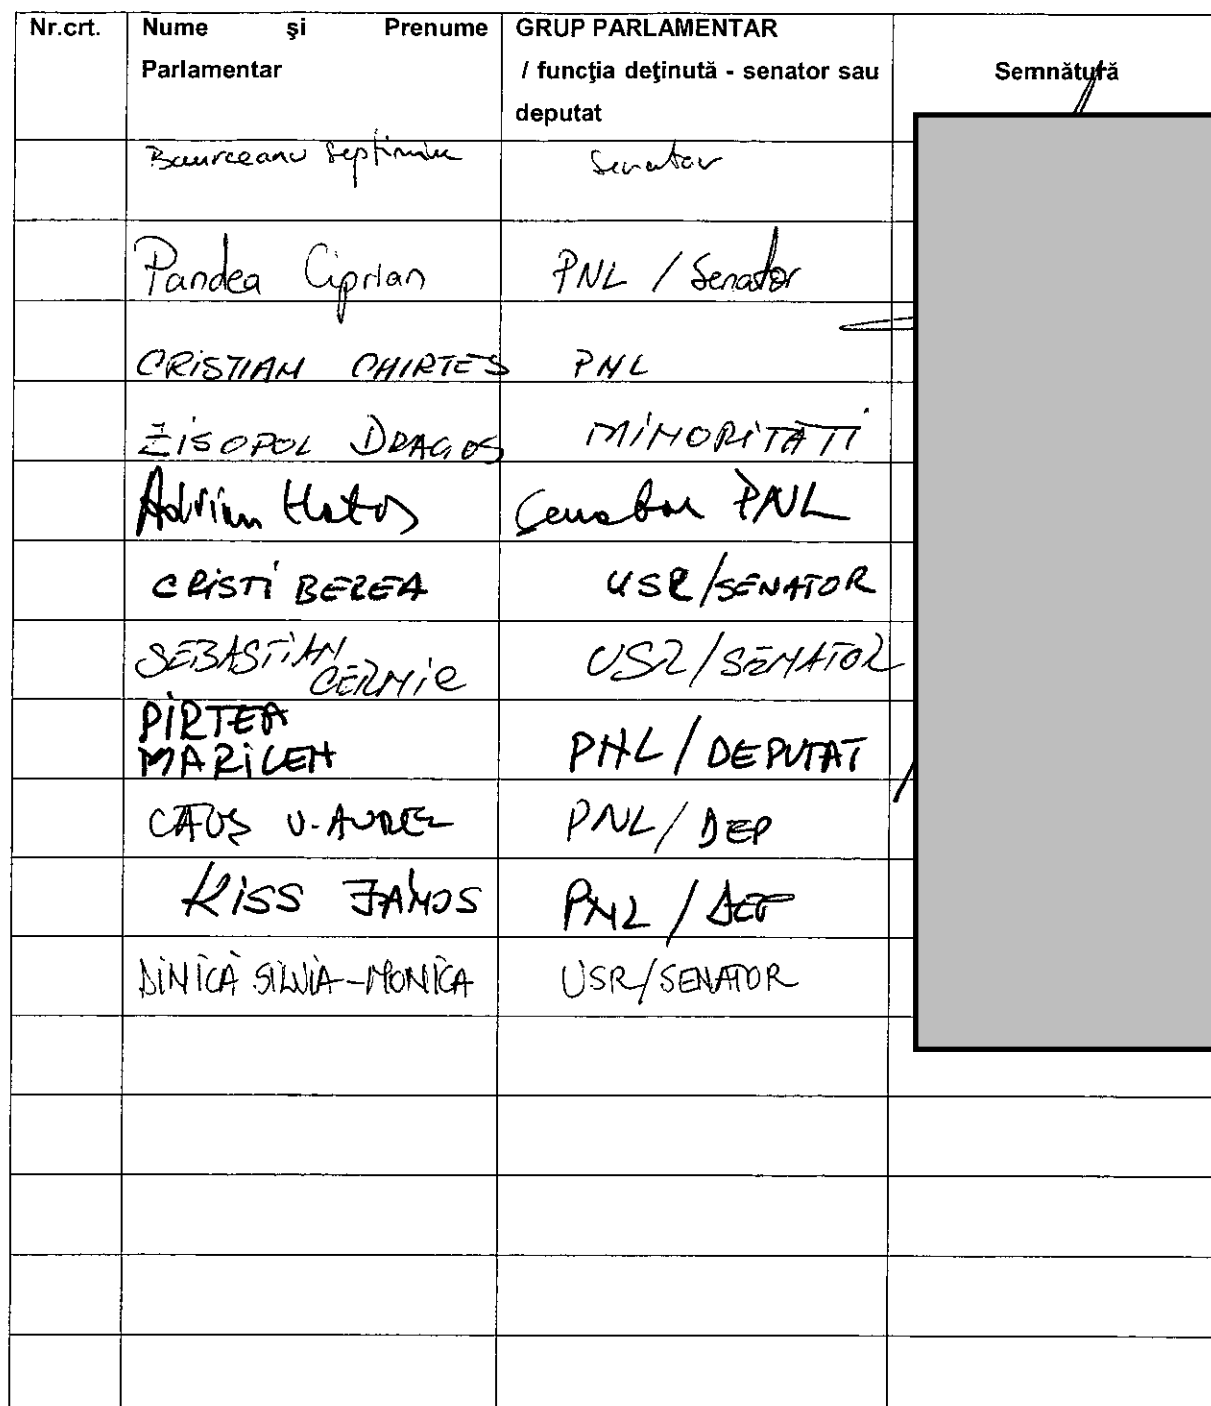 Nr.crt. Nume și Prenume GRUP PARLAMENTAR
Parlamentar / funcția deținută - senator sau Semnătură
deputat
Septimiu Senator
Pandea Ciprian PNL / Senator
CRISTIAN CHIRTEȘ PNL
ZISOPOL DRAGOȘ MINORITĂȚI
Adrian Hatos Senator PNL
CRISTI BEREA USR/SENATOR
SEBASTIAN USR/SENATOR
CERNIC
PIRTEA
MARILEN PNL/DEPUTAT
CAUȘ V. AUREL PNL/DEP
KISS JANOS PNL / DEP
DINICĂ SILVIA-MONICA USR/SENATOR